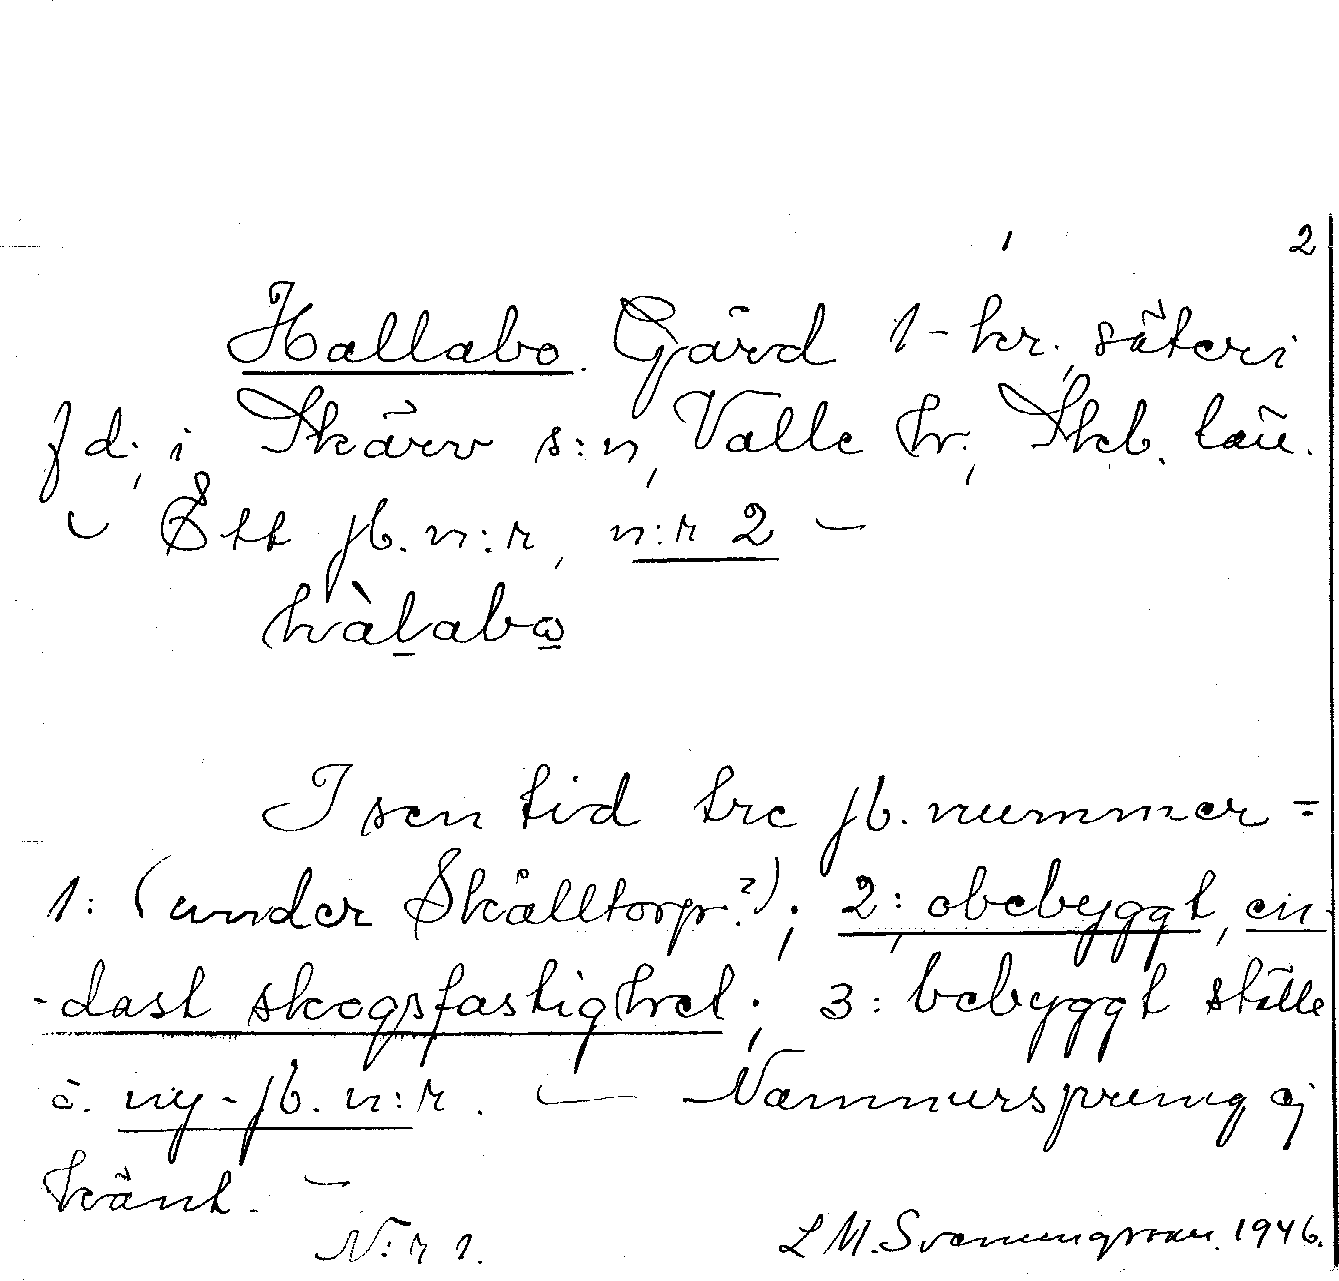 1 2
Hallabo. Gård 1-hr, säteri
fd., i Skärv s:n, Valle hr., Skb. län.
- Ett jb. n:r, n:r 2 -
hàḻabo̲
I sen tid tre jb. nummer =
1: (under Skålltorp?); 2: obebyggt, en-
-dast skogsfastighet; 3: bebyggt ställe
o. ny-jb. n:r. — Namnursprung ej
känt. -
N:r 1. L M. Svenungsson. 1946.